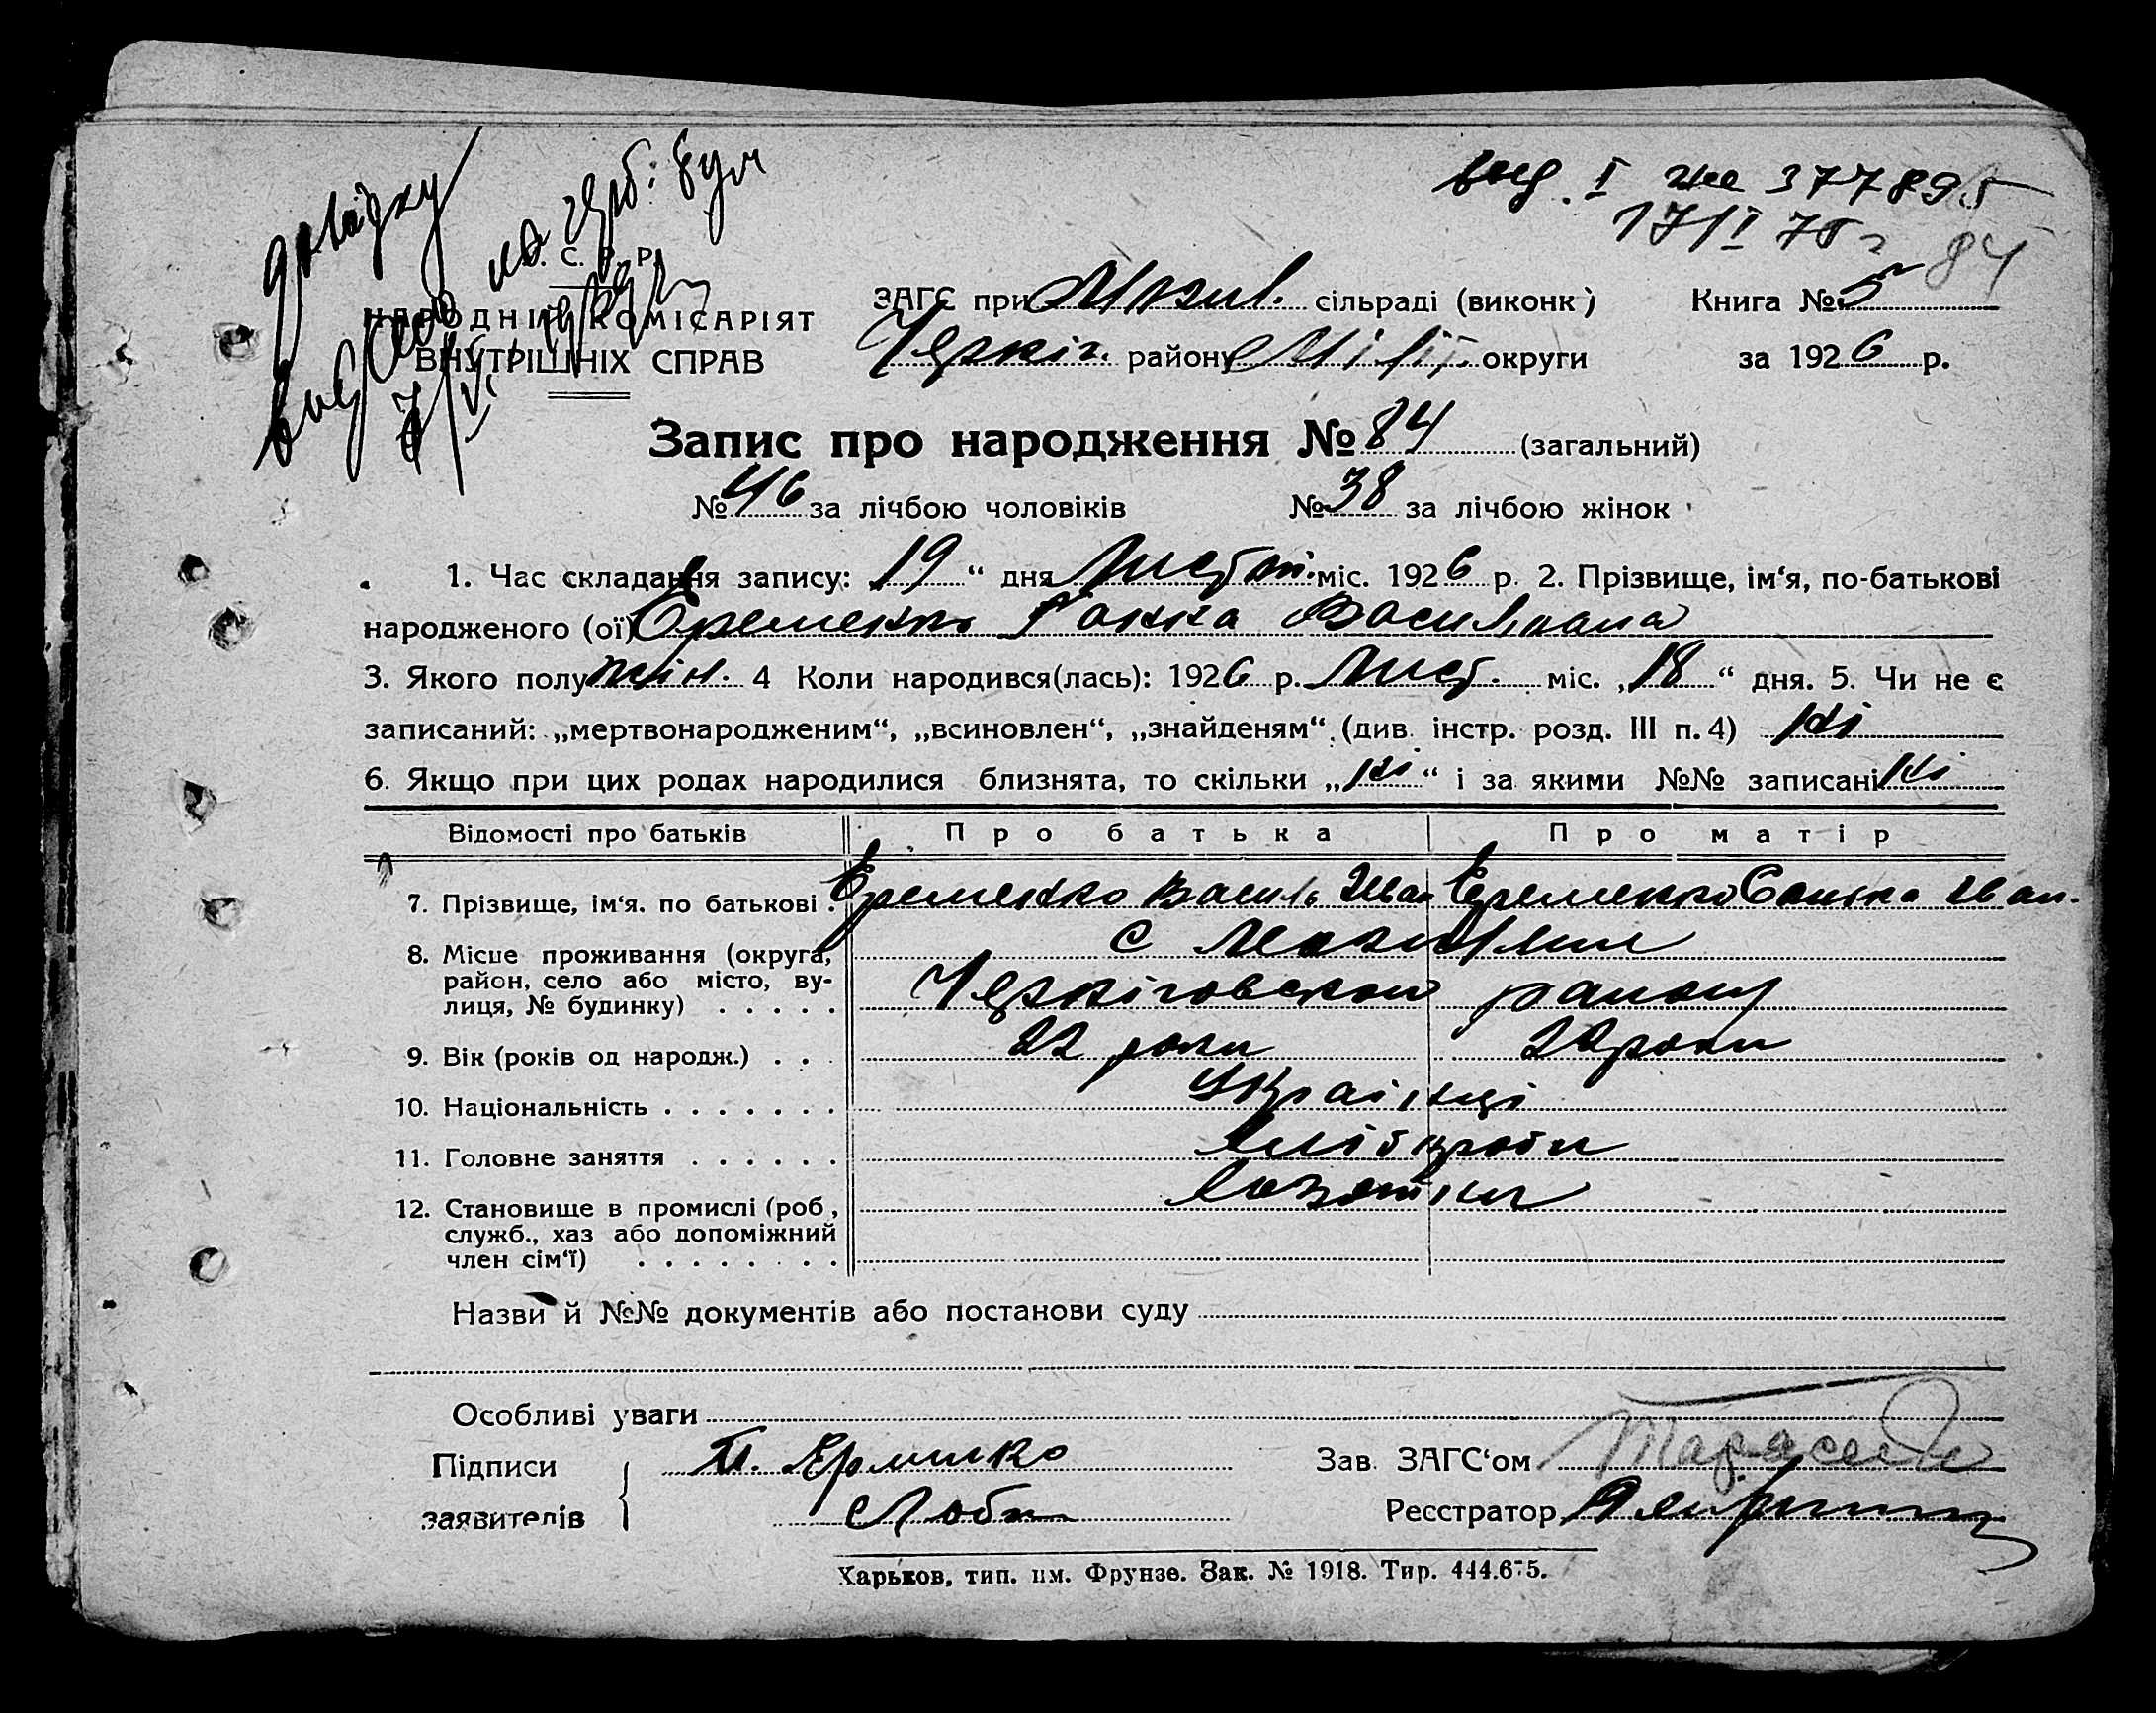 довідку
на
У. С. Р. Р.
НАРОДНІЙ КОМІСАРІЯТ
ВНУТРІШНІХ СПРАВ
вид. І 377895
17/І 75 г 84
ЗАГС при сільраді (виконк) Книга № 5
Черніг. району округи за 1926 р.
Запис про народження № 84 (загальний)
№ 46 за лічбою чоловіків № 38 за лічбою жінок
1. Час складання запису: 19 “ дня Листоп. міс. 1926 р. 2. Прізвище, ім‘я, по-батькові
народженого (ої) Еременко Ганна Василівна
3. Якого полу жін. 4 Коли народився(лась): 1926 р. Лист. міс. „18“ дня. 5. Чи не є
записаний: „мертвонародженим“, „всиновлен“, „знайденям“ (див. інстр. розд. III п. 4) Ні
6. Якщо при цих родах народилися близнята, то скільки „Ні“ і за якими №№ записані Ні
Відомості про батьків Про батька Про матір
7. Прізвище, ім‘я. по батькові . Еременко Василь Іван Еременко Іван.
8. Місце проживання (округа, с
район, село або місто, ву- Черніговского району
лиця, № будинку) . . . . .
9. Вік (років од народж.) . . . 22 роки 22 роки
10. Національність . . . . . . . Українці
11. Головне заняття . . . . . . Хліборобы
12. Становище в промислі (роб,
служб., хаз або допоміжний
член сім‘ї) . . . . . . . .
Назви й №№ документів або постанови суду
Особливі уваги
Підписи Зав. ЗАГС‘ом
заявителів Реєстратор
Харьков, тип. им. Фрунзе. Зак. № 1918. Тир. 444.675.